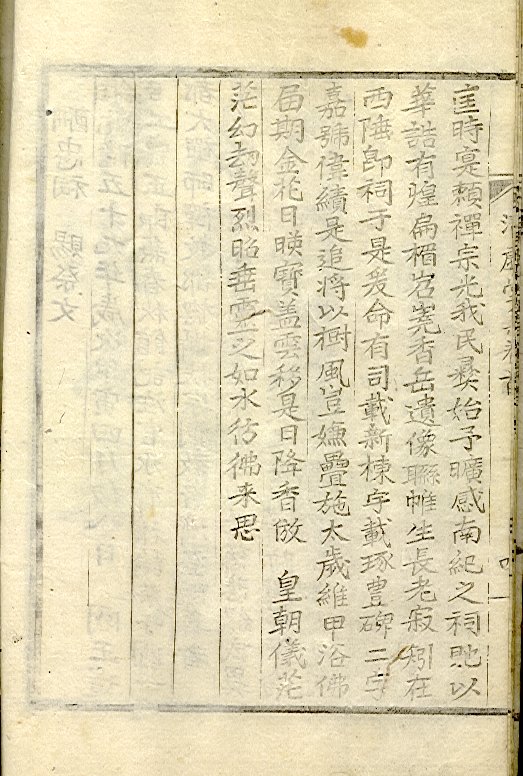 匡時寔賴禪宗光我民彝始予曠感南紀之祠貤以
華誥有煌扁楣岧嶢香岳遺像聯帷生長老寂矧在
西陲卽祠于是爰命有司載新棟宇載琢豊碑二字
嘉號偉績是追將以樹風豈嫌疊施太歲維甲浴佛
届期金花日暎寶盖雲移是日降香倣　皇朝儀茫
茫幻劫聲烈昭垂靈之如水彷彿来思